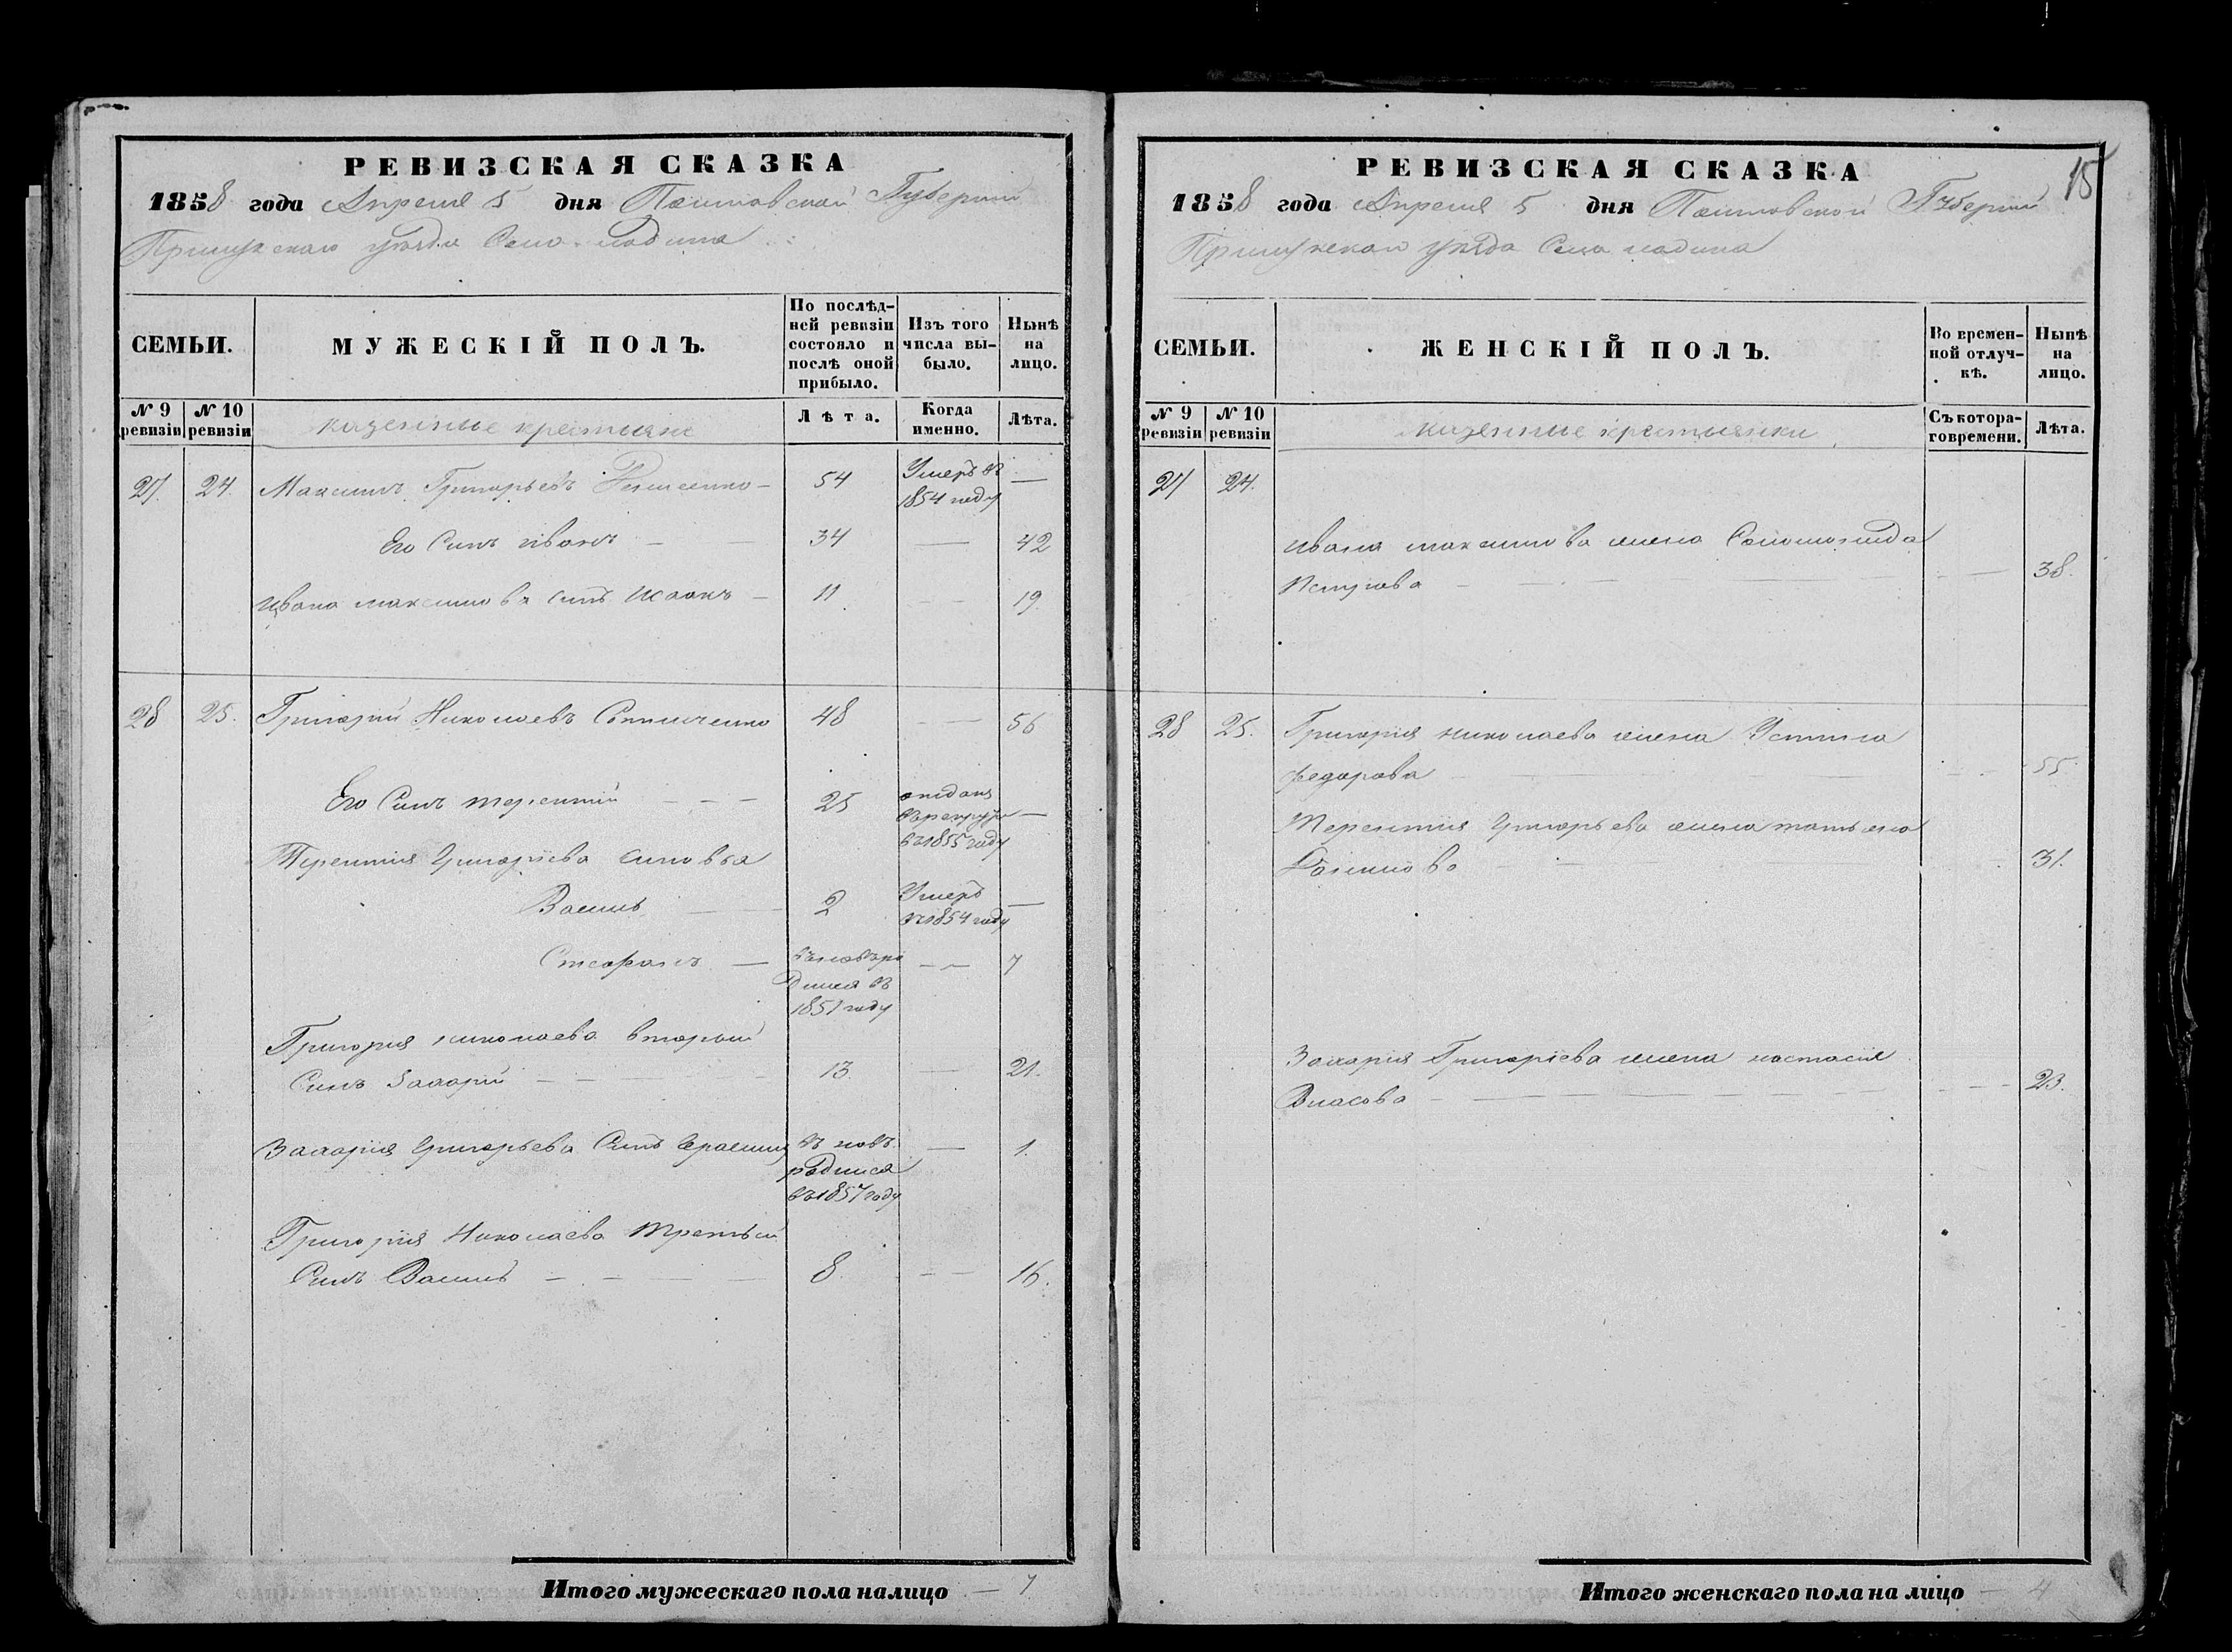 РЕВИЗСКАЯ СКАЗКА
1858 года Апреля 5 дня Полтавской Губернии
Прилукскаго уезда Села
СЕМЬИ.
МУЖЕСКІЙ ПОЛЪ.
По послѣд-
ней ревизіи
состояло и
послѣ оной
прибыло.
Изъ того
числа вы-
было.
Нынѣ
на
лицо.
№ 9
ревизіи
№ 10
ревизіи
казенные крестьяне
Лѣта.
Когда
именно.
Лѣта.
27 24. Максимъ Григорьевъ 54 Умеръ въ —
1854 году
Его Сынъ иванъ — 34 — 42
ивана максимова сынъ Исаакъ — 11 — 19
28 25. Григорий Николаевъ 48 — 56
Его Сынъ терентий — 25 отданъ
въ рекруты —
въ 1855 году
Терентия Григоріева сыновья
Василь — 2 Умеръ —
въ 1854 году
Стефанъ — въ новъ ро 7
дился въ
1851 году
Григория николаева вторый
Сынъ Захарій — 13 — 21.
Захарія Григорьева Сынъ Герасимъ въ новъ — 1.
родился
въ 1857 году
Григорія Николаева Третьий
Сынъ Василь — 8 — 16.
Итого мужескаго пола налицо — 7
15
РЕВИЗСКАЯ СКАЗКА
1858 года Апреля 5 дня Полтавской Губернии
Прилукскаго уезда Села
СЕМЬИ.
ЖЕНСКІЙ ПОЛЪ.
Во времен-
ной отлуч-
кѣ.
Нынѣ
на
лицо.
№ 9
ревизіи
№ 10
ревизіи
казенные крестьянки
Съ котора-
го времени.
Лѣта.
27 24.
ивана максимова жена Соломонида
— 38.
28 25. Григорія николаева жена Устина
федорова — 55
Терентия Григорьева жена татьяна
— 31.
Захарія Григоріева жена настасія
Власова — 23.
Итого женскаго пола на лицо — 4